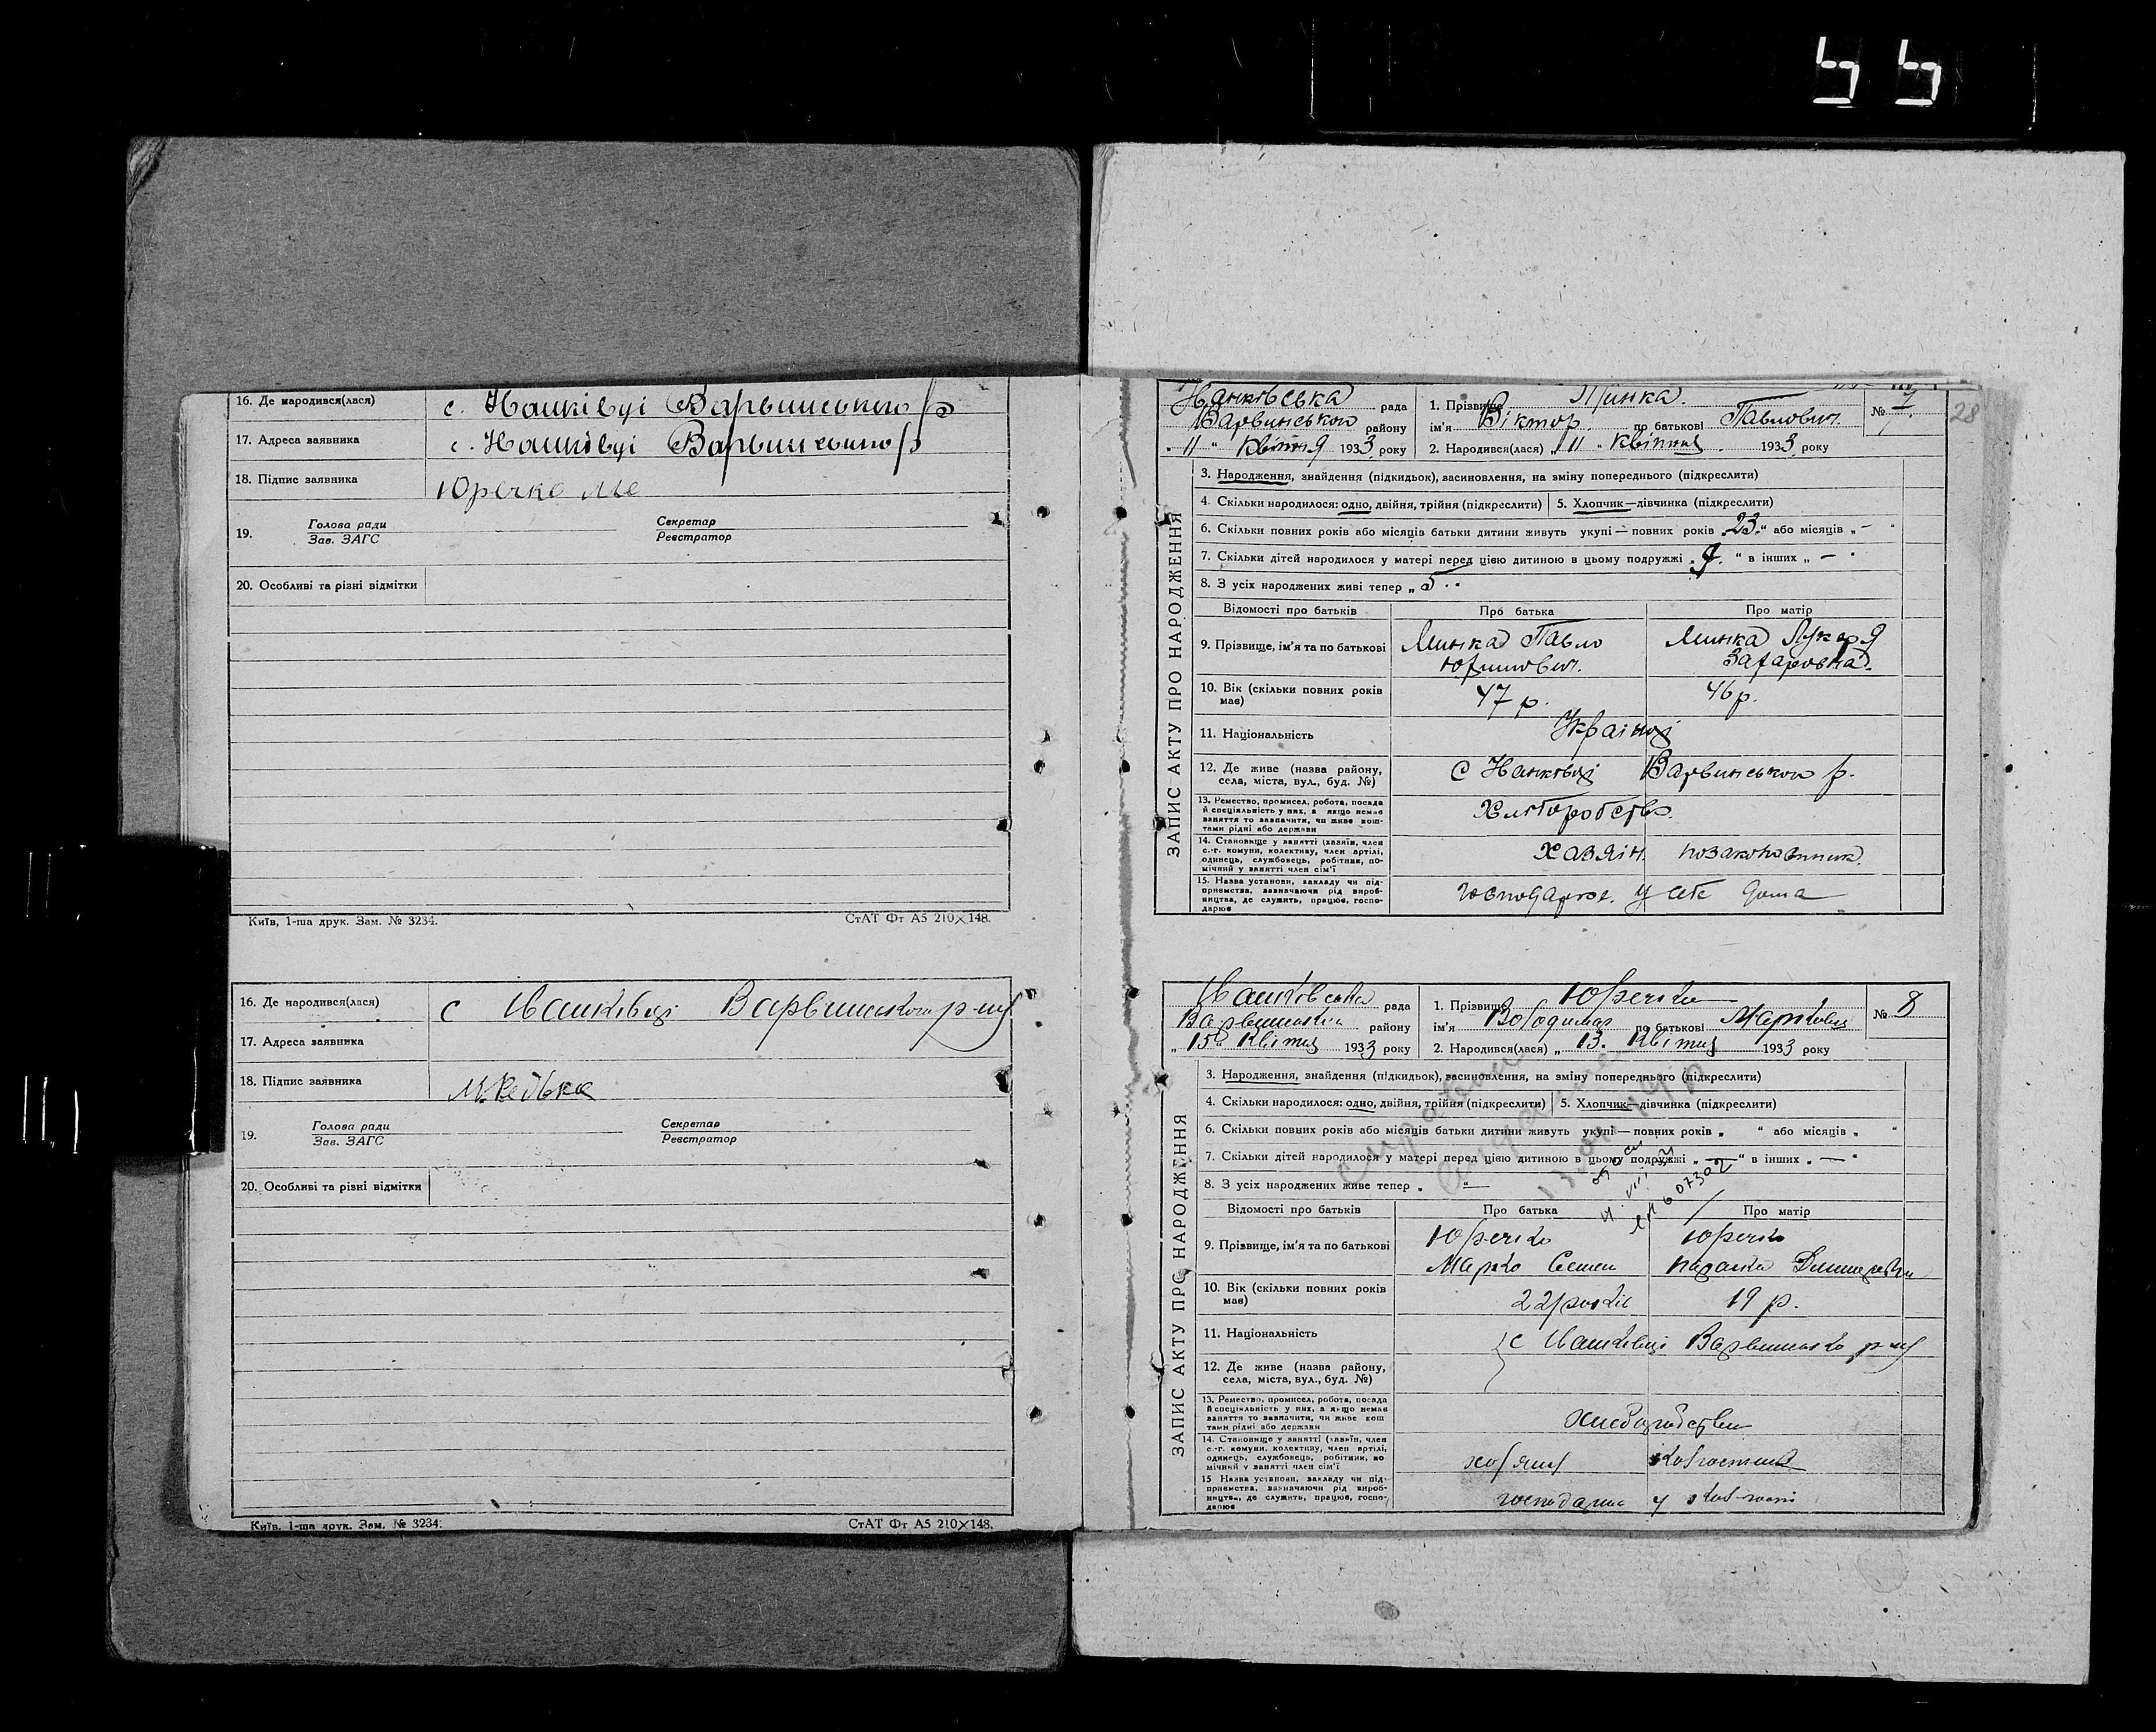 16. Де народився(лася) с. Нашківці Варвинського р
17. Адреса заявника с. Нашківці Варвинського р
18. Підпис заявника Юречко Ме
19. Голова ради Зав. ЗАГС Секретар Реєстратор
20. Особливі та різні відмітки
Київ, 1-ша друк. Зам. № 3234. СтАТ Фт А5 210×148.
16. Де народився(лася) с Нашківці Варвинського р-ну
17. Адреса заявника
18. Підпис заявника
19. Голова ради Зав. ЗАГС Секретар Реєстратор
20. Особливі та різні відмітки
Київ, 1-ша друк. Зам. № 3234. СтАТ Фт А5 210×148.
28
ЗАПИС АКТУ ПРО НАРОДЖЕННЯ
рада 1. Прізвище № 7
Варвинського району ім'я Віктор по батькові Павлович
„ 11 " квітня 1933 року 2. Народився(лася) „ 11 " квітня 1933 року
3. Народження, знайдення (підкидьок), засиновлення, на зміну попереднього (підкреслити)
4. Скільки народилося: одно, двійня, трійня (підкреслити) 5. Хлопчик—дівчинка (підкреслити)
6. Скільки повних років або місяців батьки дитини живуть укупі — повних років „ 23 " або місяців „ — "
7. Скільки дітей народилося у матері перед цією дитиною в цьому подружжі „ " в інших „ — "
8. З усіх народжених живі тепер „ 5 "
Відомості про батьків Про батька Про матір
9. Прізвище, ім'я та по батькові Минка Павло Минка
Захаровна
10. Вік (скільки повних років має) 47 р. 46 р.
11. Національність Українці
12. Де живе (назва району, села, міста, вул., буд. №) с Нашківці Варвинського р.
13. Ремество, промисел, робота, посада й спеціяльність у них, а якщо немає заняття то зазначити, чи живе коштами рідні або держави Хліборобство
14. Становище у занятті (хазяїн, член с.-г. комуни, колективу, член артілі, одинець, службовець, робітник, помічний у занятті член сім'ї Хазяїн
15. Назва установи, закладу чи підприємства, зазначаючи рід виробництва, де служить, працює, господарює
рада 1. Прізвище Юречко № 8
району ім'я Володимир по батькові Маркович
„ 15 " квітня 1933 року 2. Народився(лася) „ 13. квітня 1933 року
3. Народження, знайдення (підкидьок), засиновлення, на зміну попереднього (підкреслити)
4. Скільки народилося: одно, двійня, трійня (підкреслити) 5. Хлопчик—дівчинка (підкреслити)
6. Скільки повних років або місяців батьки дитини живуть укупі — повних років „ " або місяців „ "
7. Скільки дітей народилося у матері перед цією дитиною в цьому подружжі „ — " в інших „ — "
8. З усіх народжених живе тепер „ "
607302
Відомості про батьків Про батька Про матір
9. Прізвище, ім'я та по батькові Юречко Юречко
Марко Семен
10. Вік (скільки повних років має) 22 років 19 р.
11. Національність с Нашківці Варвинсько р-ну
12. Де живе (назва району, села, міста, вул., буд. №)
13. Ремество, промисел, робота, посада й спеціяльність у них, а якщо немає заняття то зазначити, чи живе коштами рідні або держави
14. Становище у занятті (хазяїн, член с.-г. комуни, колективу, член артілі, одинець, службовець, робітник, помічний у занятті член сім'ї
15 Назва установи, закладу чи підприємства, зазначаючи рід виробництва, де служить, працює, господарює